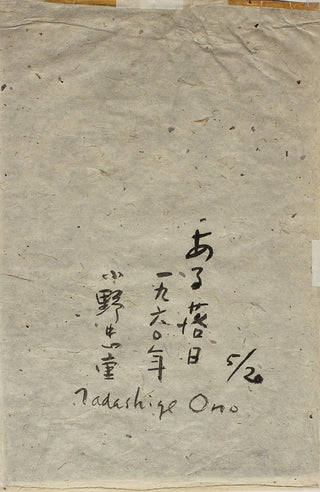 ある落日
一九六〇年
小野忠重
5/20
Tadashige Ono